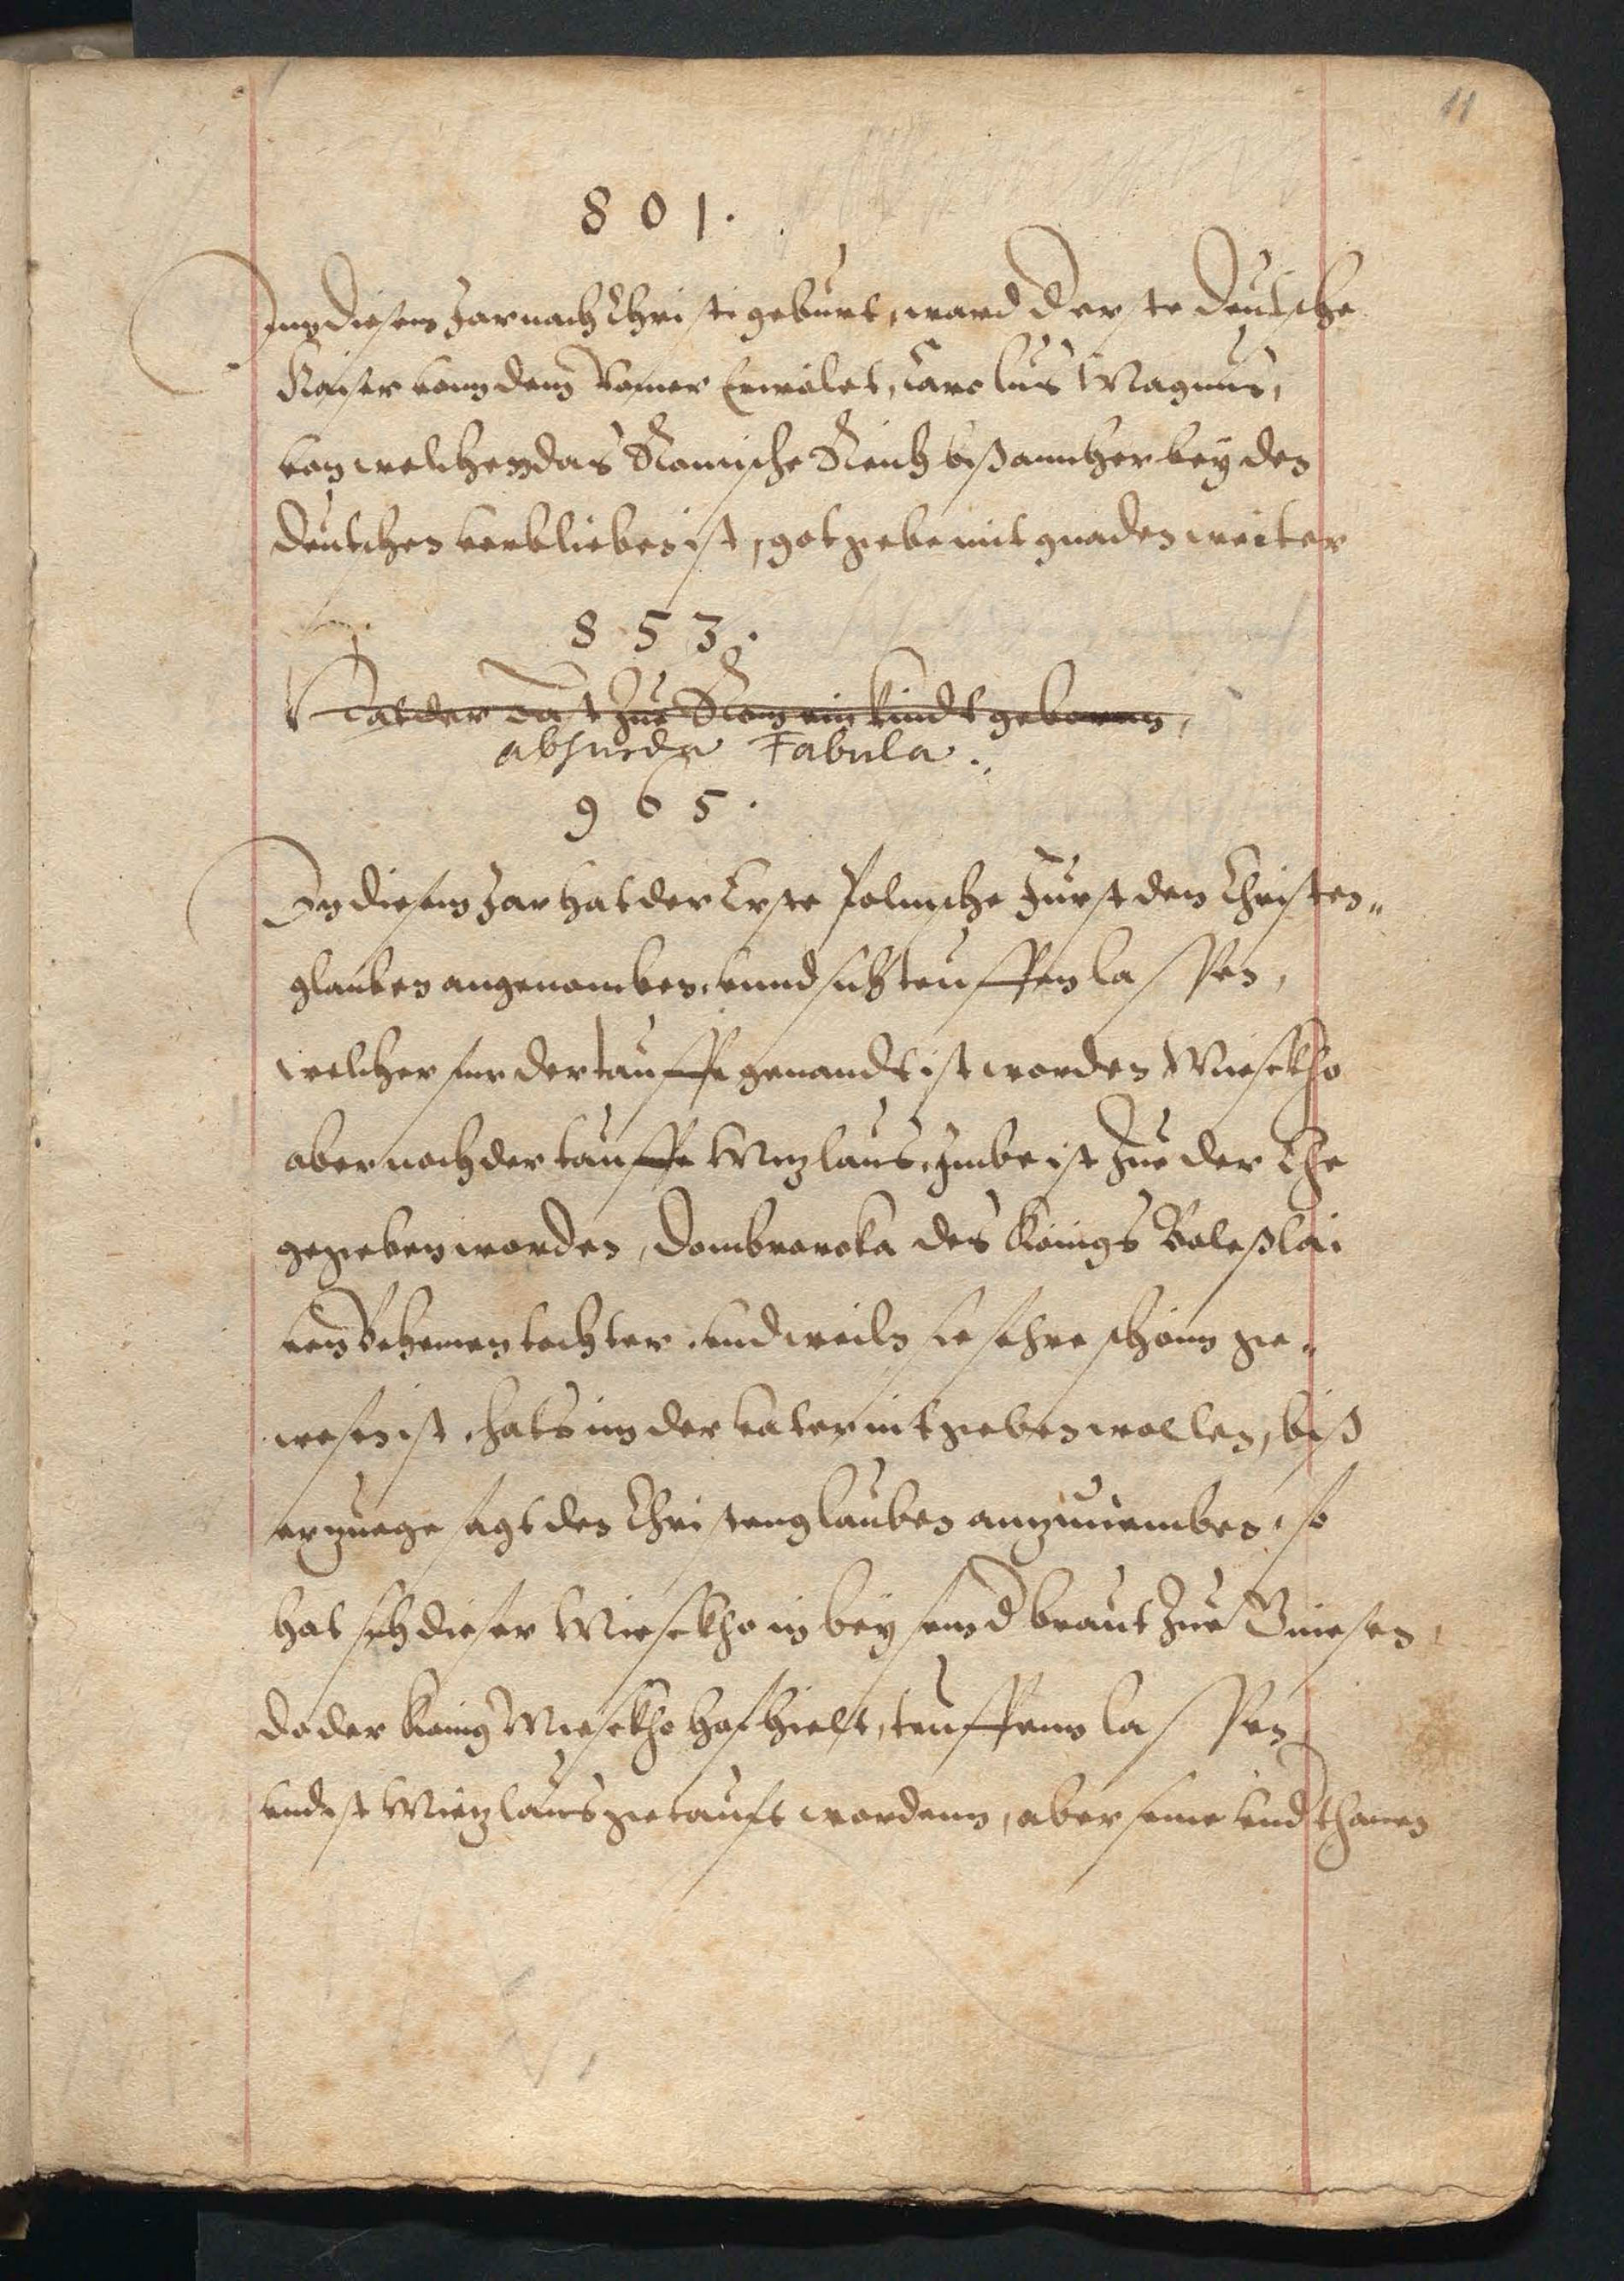 11
801.
Inn diesem Jar nach Christi geburt, ward der erste deutsche
Kaiser vonn dem Romer Erwölet, Carolus Magnus,
von welchen das Römische Reich biß annher bey den
deutschen verblieben ist, got gebe mit gnaden weiter
853.
Hat der Babst Zue Rom ein kindt geboren,
absurda Fabula.
965.
In diesem Jar hat der Erste Polnische Fürst den Christen„
glauben angenomben, vnnd sich teuffen lassen,
welcher fur der tauffe genandt ist worden Miesekho
aber nach der tauffe Mizlaus, Ime ist Zue der Ehe
gegeben worden, Dombrowka des Königs Boleßlai
von Behemen tochter, vnd weiln sie sehre schönn ge„
wesen ist, hats im der vater nit geben wollen, biß
er zuege sagt den Christenglauben anzunemben, so
hat sich dieser Miesekho in bey sein d braut Zue Gniesen
do der König Miesekho hof hielt, teuffenn lassen
vnd ist Mietzlaus getauft wordenn, aber seine vndthanen